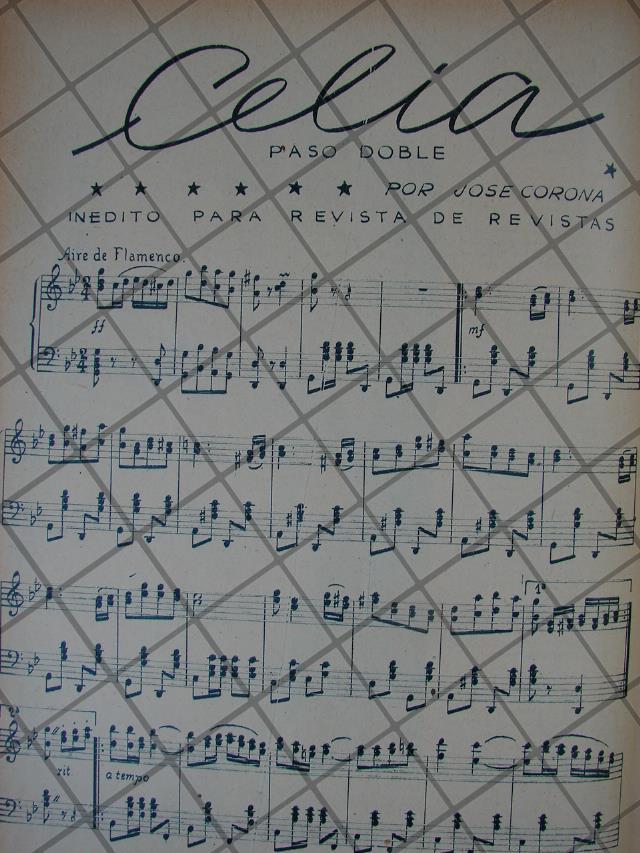 Celia
PASO DOBLE
POR JOSE CORONA
INEDITO PARA REVISTA DE REVISTAS
Aire de Flamenco.
2
4
ff
2
4
mf
1ª
rit.
a tempo